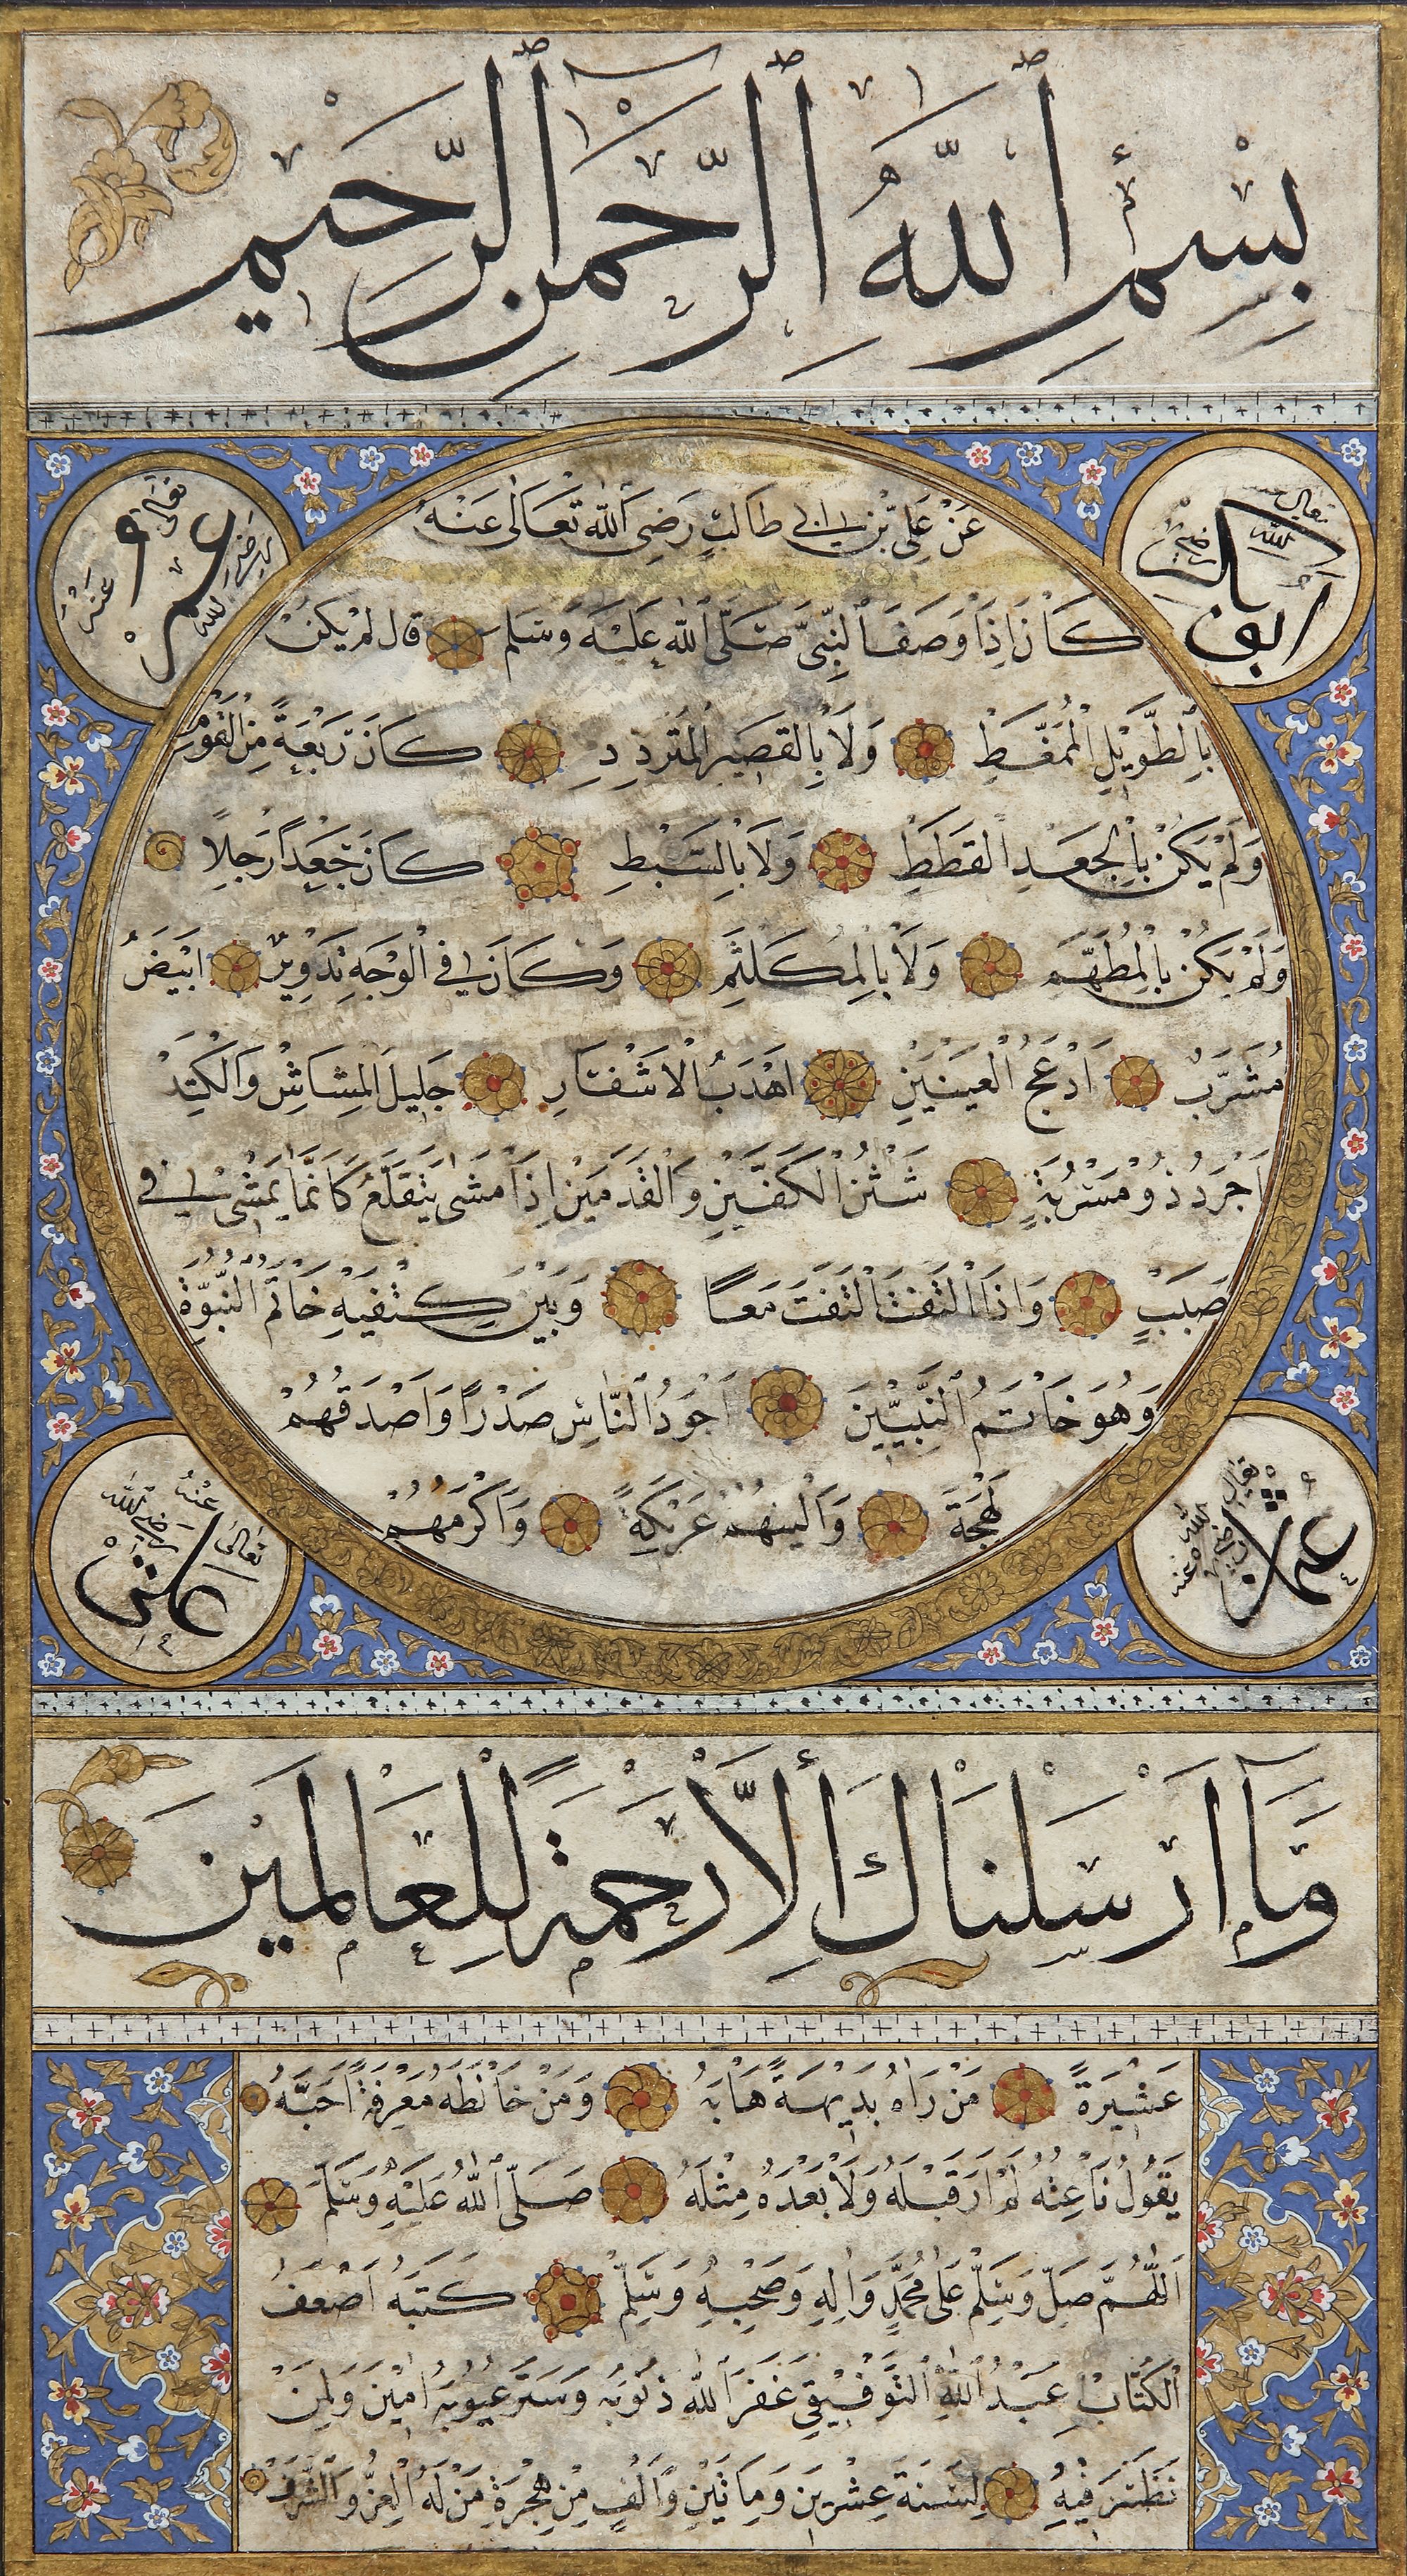 بِسْمِ ٱللَّهِ ٱلرَّحْمٰنِ ٱلرَّحِيمِ
ابو بكر رضى الله تعالى عنه
عمر رضى الله تعالى عنه
عَنْ عَلِىِّ بْنِ ابى طَالِبٍ رَضِىَ ٱللّٰهُ تَعَالٰى عَنْهُ
كَانَ اِذَا وَصَفَ ٱلنَّبِىَّ صَلَّى ٱللّٰهُ عَلَيْهِ وَسَلَّمَ قَالَ لَمْ يَكُنْ
بِالطَّوِيلِ الْمُمَّغِطِ وَلَا بِالْقَصِيرِ الْمُتَرَدِّدِ كَانَ رَبْعَةً مِنَ الْقَوْمِ
وَلَمْ يَكُنْ بِالْجَعْدِ الْقَطَطِ وَلَا بِالسَّبْطِ كَانَ جَعْدًا رَجِلًا
وَلَمْ يَكُنْ بِالْمُطَهَّمِ وَلَا بِالْمُكَلْثَمِ وَكَانَ فِى الْوَجْهِ تَدْوِيرٌ اَبْيَضُ
مُشَرَّبٌ اَدْعَجُ الْعَيْنَيْنِ اَهْدَبُ الْاَشْفَارِ جَلِيلُ الْمُشَاشِ وَالْكَتَدْ
اَجْرَدُ ذُو مَسْرُبَةٍ شَثْنُ الْكَفَّيْنِ وَالْقَدَمَيْنِ اِذَا مَشٰى يَتَقَلَّعُ كَاَنَّمَا يَمْشِى فِى
صَبَبٍ وَاِذَا الْتَفَتَ الْتَفَتَ مَعًا وَبَيْنَ كِتْفَيْهِ خَاتَمُ النُّبُوَّةِ
وَهُوَ خَاتَمُ النَّبِيِّينَ اَجْوَدُ النَّاسِ صَدْرًا وَاَصْدَقُهُمْ
لَهْجَةً وَاَلْيَنُهُمْ عَرِيكَةً وَاَكْرَمُهُمْ
عثمان رضى الله تعالى عنه
على رضى الله تعالى عنه
وَمَآ اَرْسَلْنَاكَ اِلَّا رَحْمَةً لِلْعَالَمِينَ
عَشِيرَةً مَنْ رَاٰهُ بَدِيهَةً هَابَهُ وَمَنْ خَالَطَهُ مَعْرِفَةً اَحَبَّهُ
يَقُولُ نَاعِتُهُ لَمْ اَرَ قَبْلَهُ وَلَا بَعْدَهُ مِثْلَهُ صَلَّى ٱللّٰهُ عَلَيْهِ وَسَلَّمَ
اَللّٰهُمَّ صَلِّ وَسَلِّمْ عَلٰى مُحَمَّدٍ وَاٰلِهِ وَصَحْبِهِ وَسَلِّمْ كَتَبَهُ اَضْعَفُ
الْكُتَّابِ عَبْدُ ٱللّٰهِ التَّوْفِيقِى غَفَرَ ٱللّٰهُ ذُنُوبَهُ وَسَتَرَ عُيُوبَهُ اٰمِينَ وَلِمَنْ
نَظَرَ فِيهِ لِسَنَةِ عِشْرِينَ وَمِائَتَيْنِ وَاَلْفٍ مِنْ هِجْرَةِ مَنْ لَهُ الْعِزُّ وَالشَّرَفْ